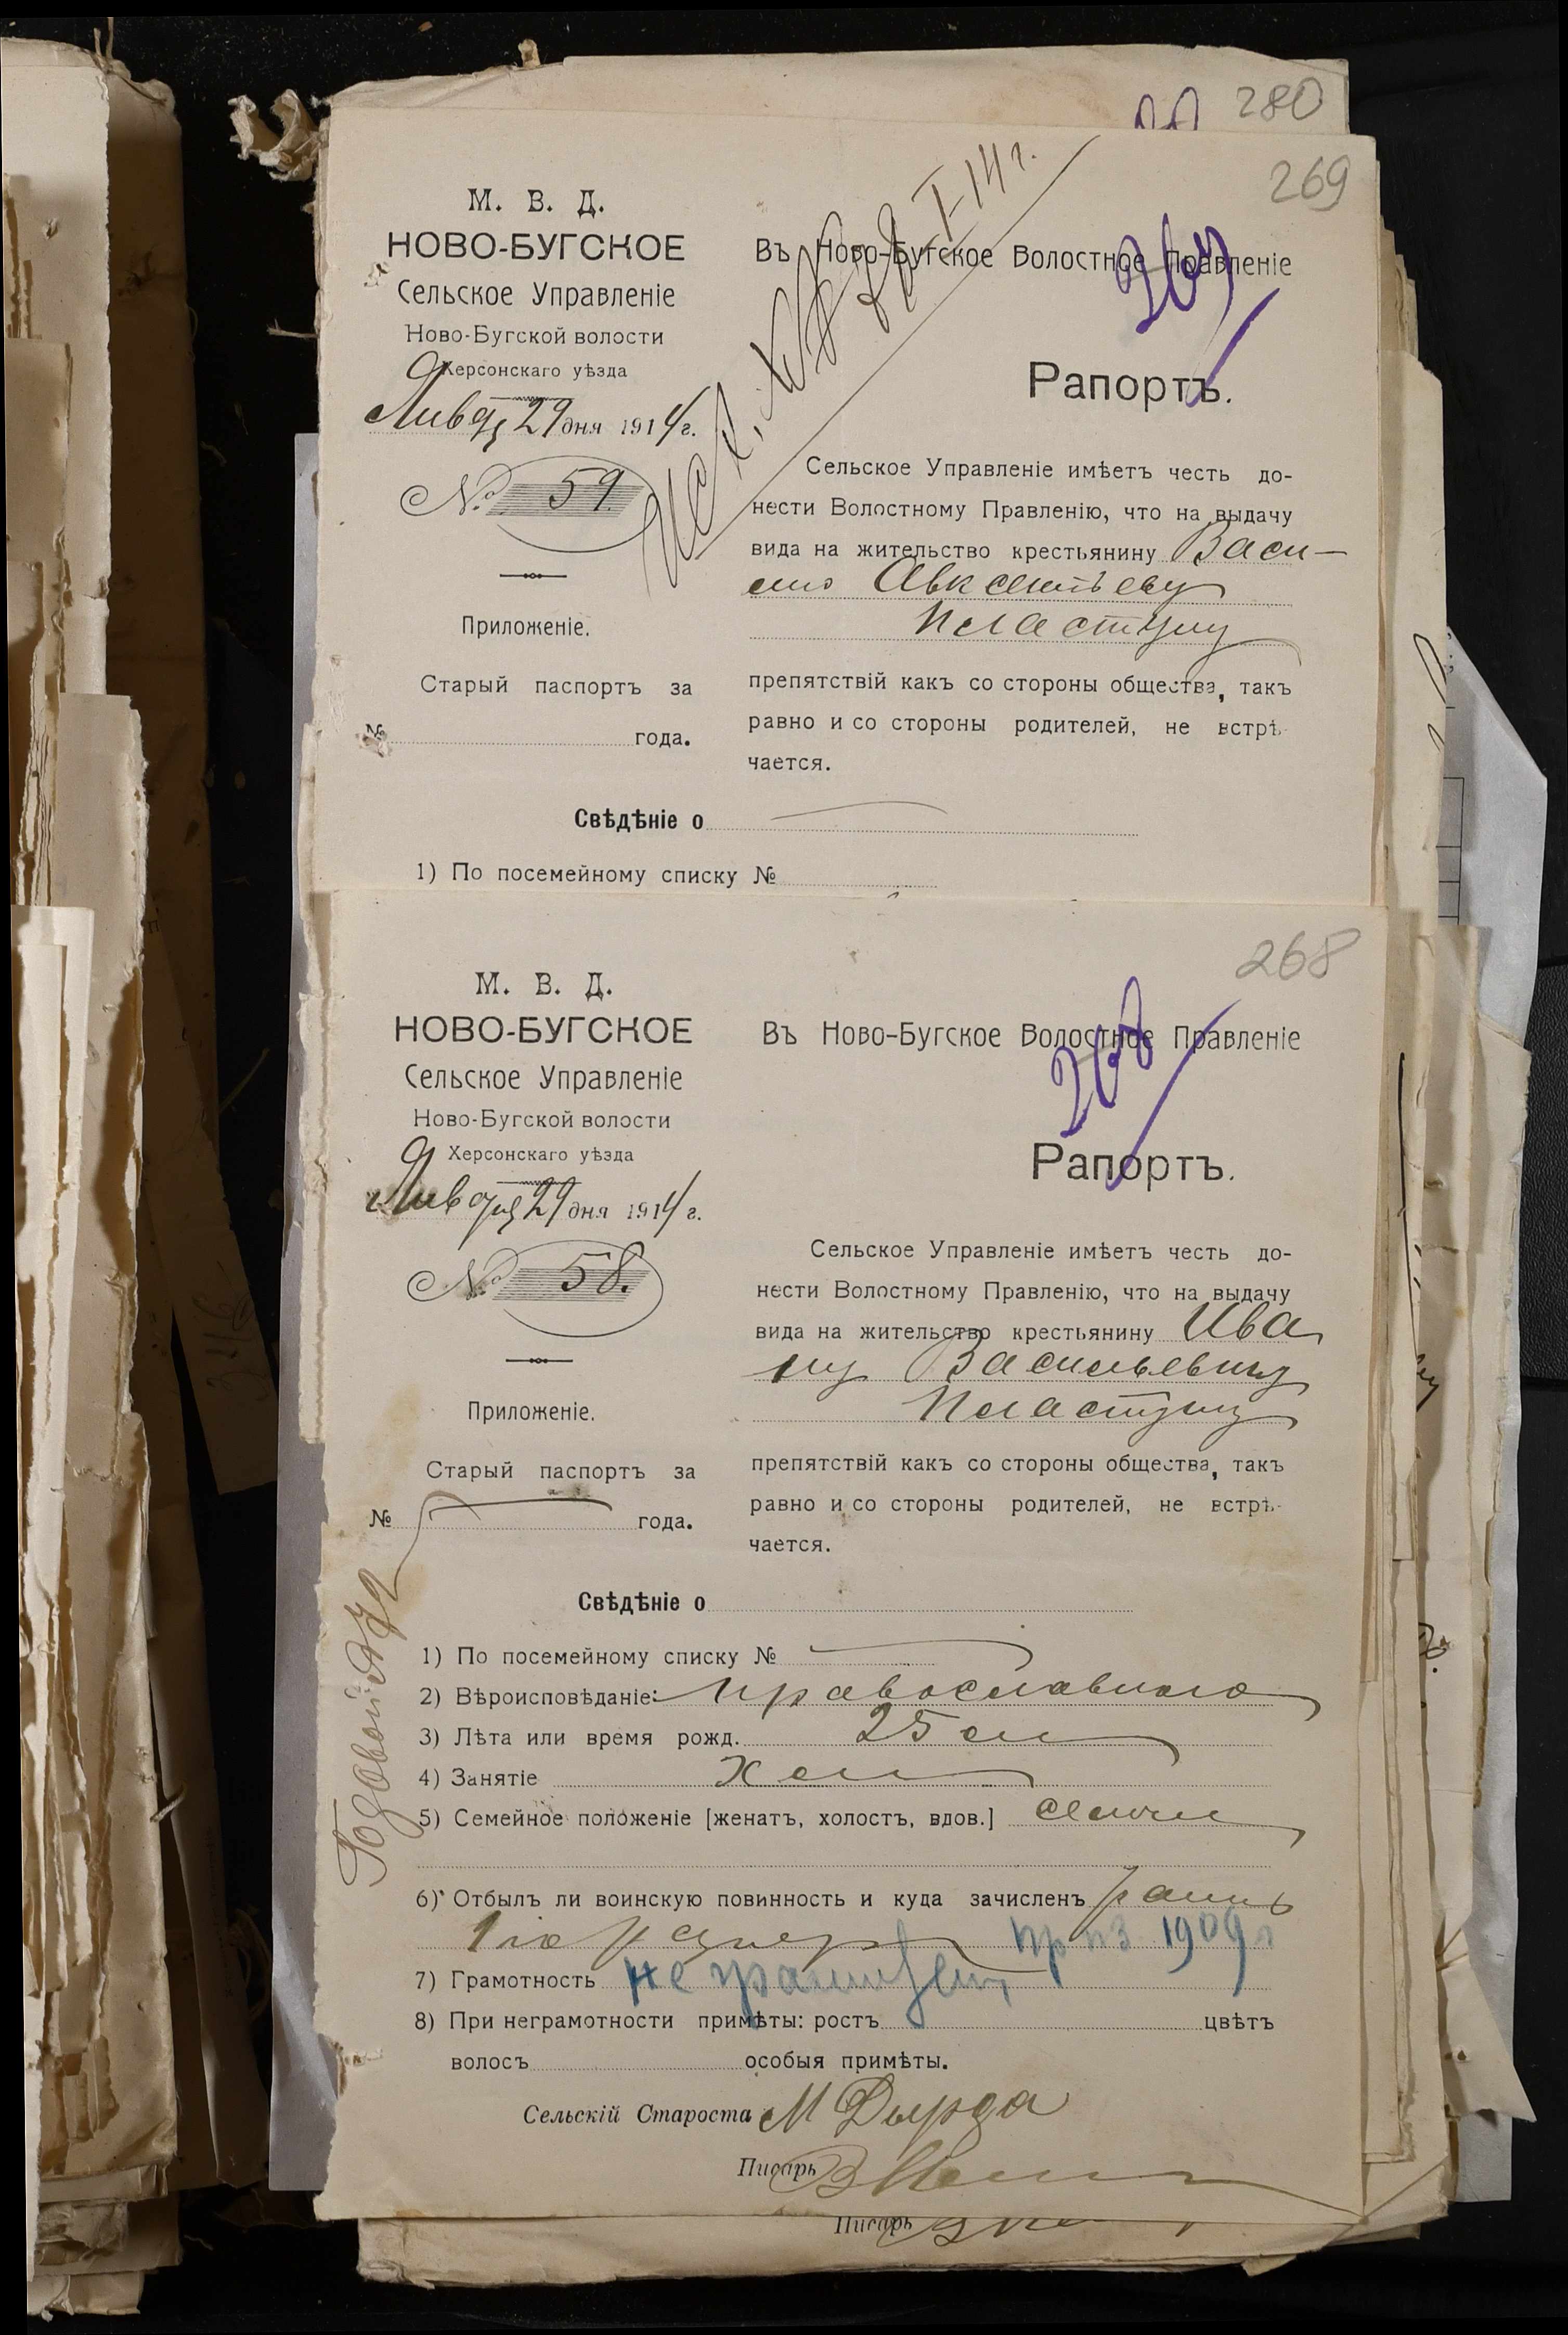 280
269
М. В. Д.
НОВО-БУГСКОЕ
Сельское Управленіе
Ново-Бугской волости
Херсонскаго уѣзда
Января 29 дня 1914 г.
№ 59.
Приложеніе.
Старый паспортъ за
№ года.
I-14 г.
Въ Ново-Бугское Волостное Правленіе
269
Рапортъ.
Сельское Управленіе имѣетъ честь до-
нести Волостному Правленію, что на выдачу
вида на жительство крестьянину Васи-
лію Авксентьеву
Пластуну
препятствій какъ со стороны общества, такъ
равно и со стороны родителей, не встрѣ-
чается.
Свѣдѣніе о
1) По посемейному списку №
268
М. В. Д.
НОВО-БУГСКОЕ
Сельское Управленіе
Ново-Бугской волости
Херсонскаго уѣзда
Января 29 дня 1914 г.
№ 58.
Приложеніе.
Старый паспортъ за
№ года.
Годовой
Въ Ново-Бугское Волостное Правленіе
268
Рапортъ.
Сельское Управленіе имѣетъ честь до-
нести Волостному Правленію, что на выдачу
вида на жительство крестьянину Ива
ну Васильевичу
Пластуну
препятствій какъ со стороны общества, такъ
равно и со стороны родителей, не встрѣ-
чается.
Свѣдѣніе о
1) По посемейному списку №
2) Вѣроисповѣданіе: православнаго
3) Лѣта или время рожд. 25 л
4) Занятіе Хл
5) Семейное положеніе [женатъ, холостъ, вдов.]
6) Отбылъ ли воинскую повинность и куда зачисленъ ратн
1го разр пр пз 1909 г
7) Грамотность неграмотен
8) При неграмотности примѣты: ростъ цвѣтъ
волосъ особыя примѣты.
Сельскій Староста М Дырда
Писарь
Писарь